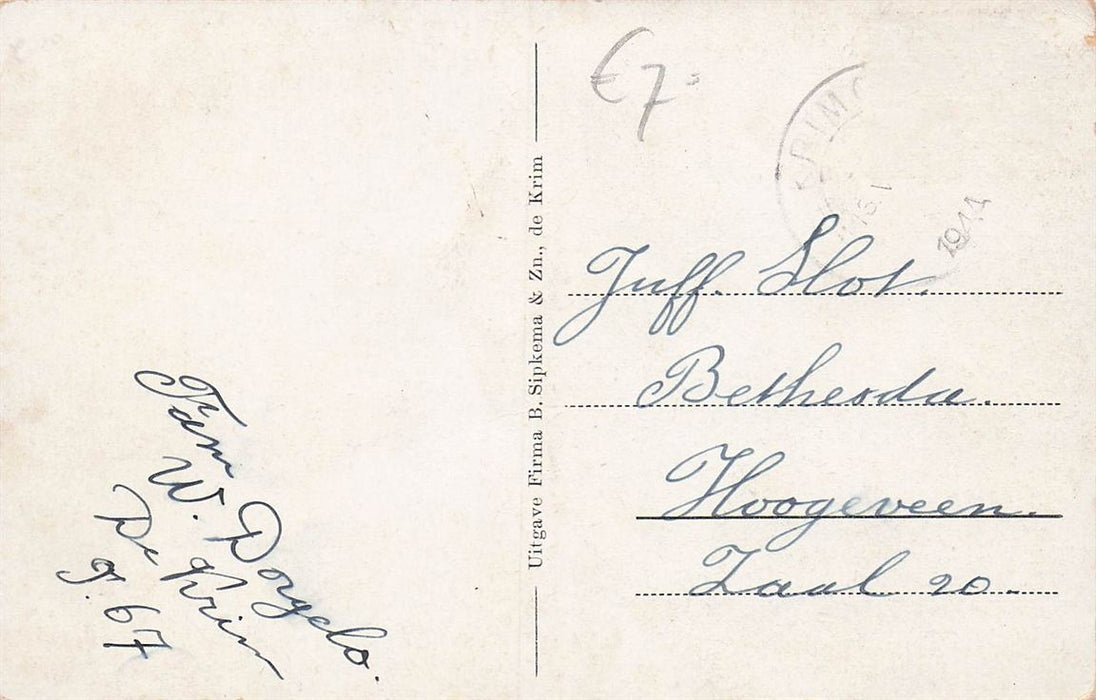 €7=
1944
Juff. Slot.
Bethesda.
Hoogeveen.
Zaal 20.
Uitgave Firma B. Sipkema & Zn., de Krim
Fam
W. Dorgelo.
De Krim
g. 67